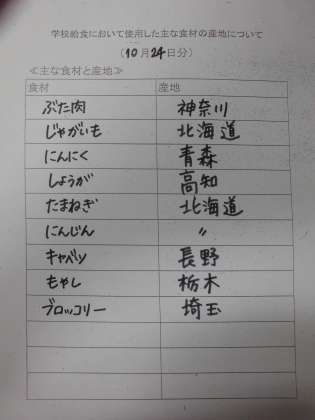 学校給食において使用した主な食材の産地について
(10月24日分)
≪主な食材と産地≫
食材 産地
ぶた肉 神奈川
じゃがいも 北海道
にんにく 青森
しょうが 高知
たまねぎ 北海道
にんじん 〃
キャベツ 長野
もやし 栃木
ブロッコリー 埼玉